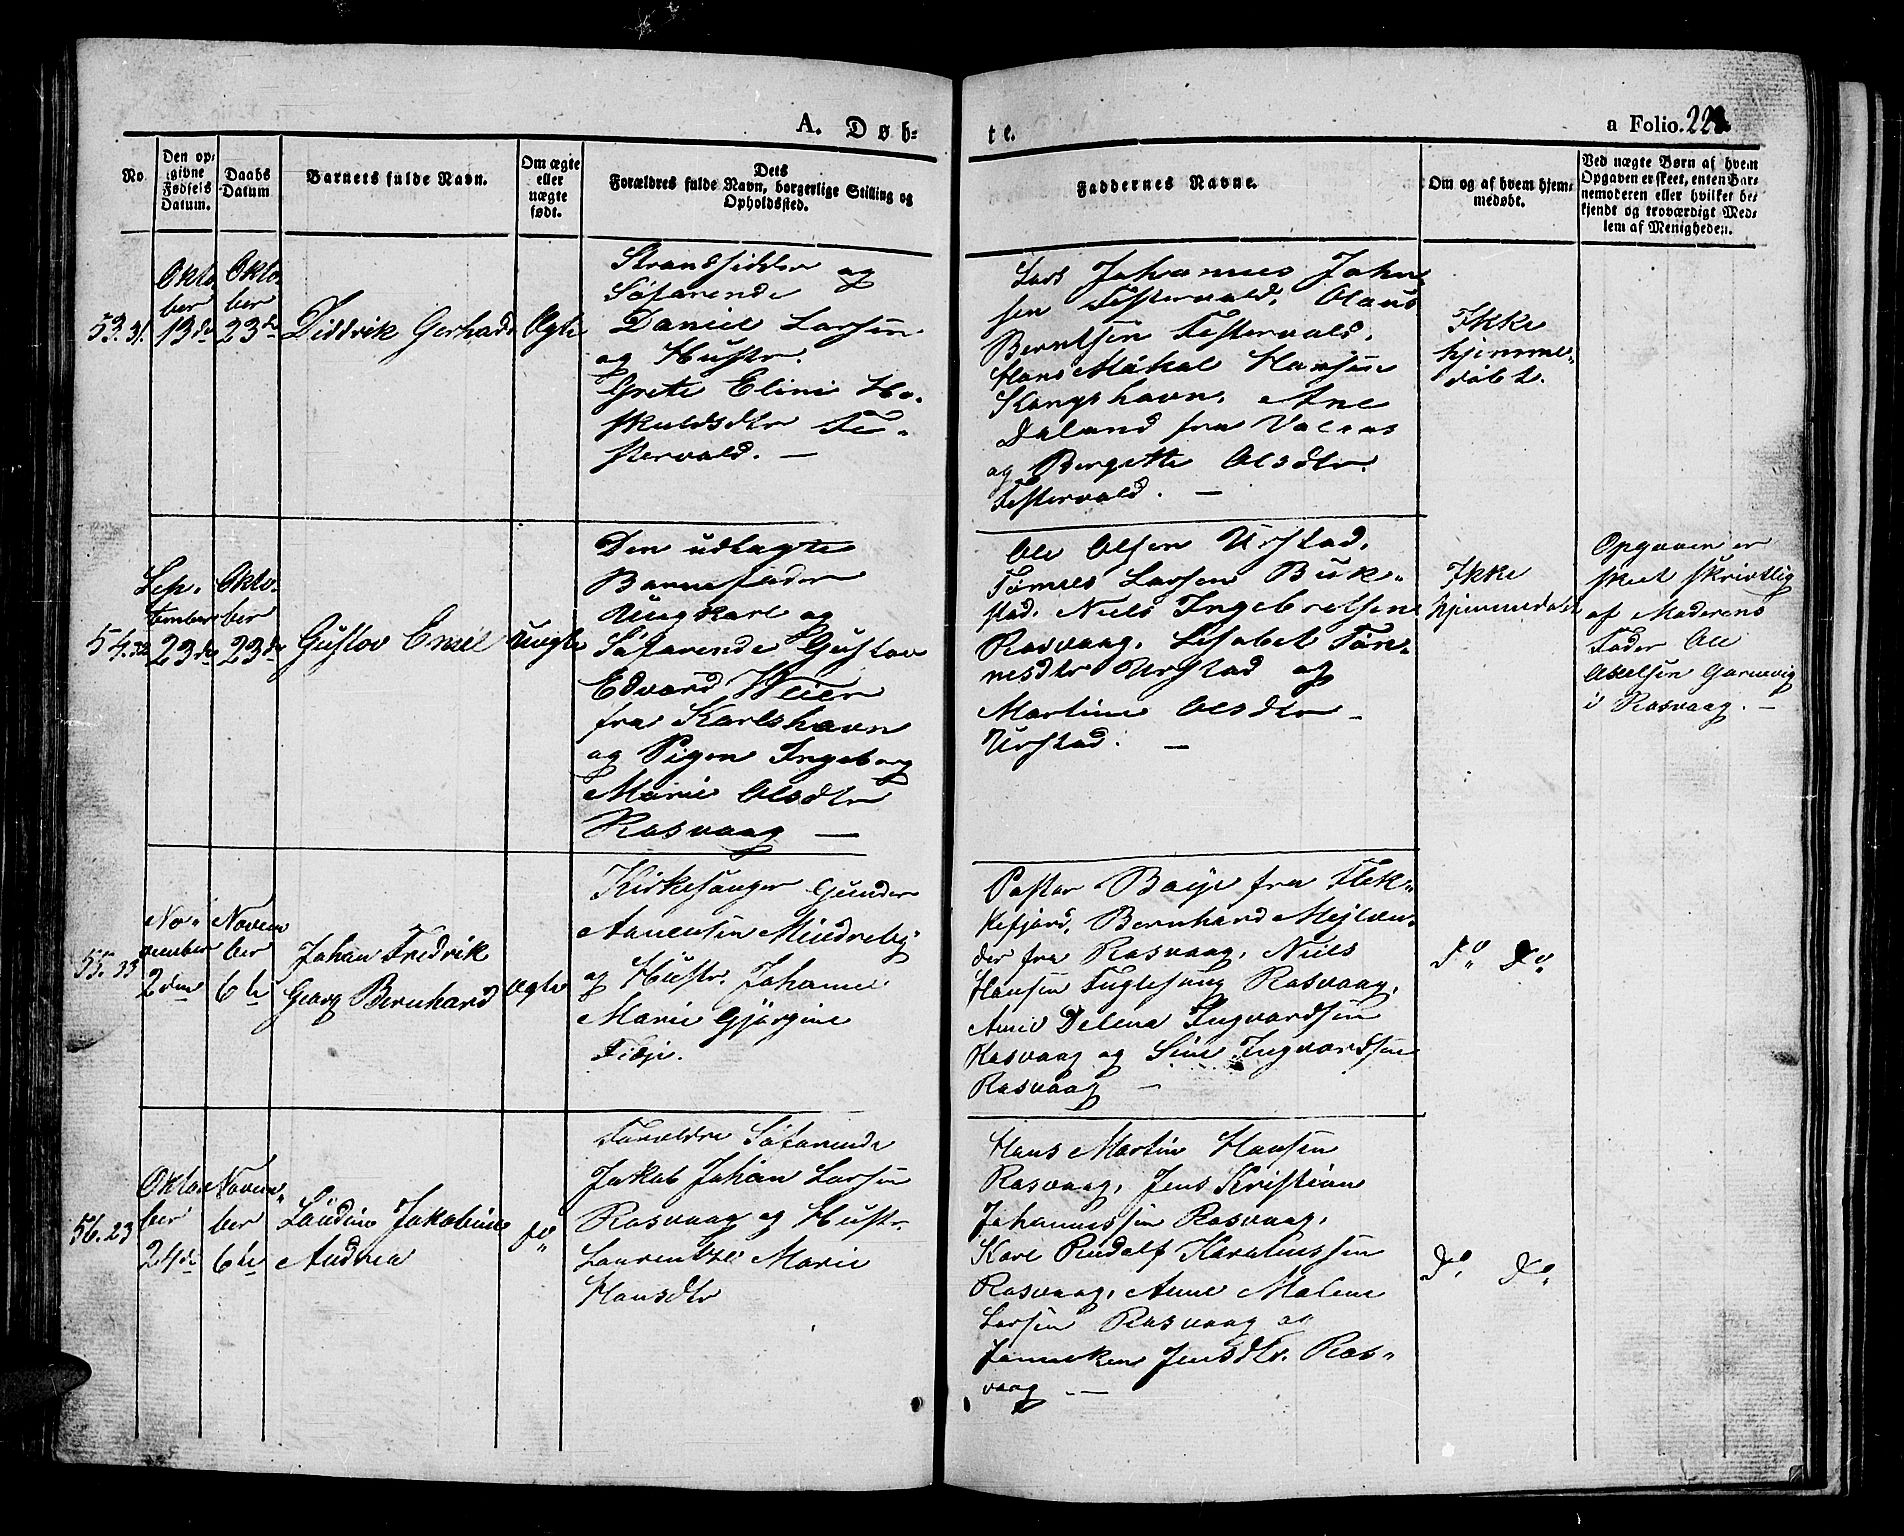 A. Døb-
te.
a Folio. 228.
No.
Den op-
givne
Fødsels
Datum.
Daabs
Datum
Barnets fulde Navn.
Om ægte
eller
uægte
født.
Dets
Forældres fulde Navn, borgerlige Stilling og
Opholdssted.
Faddernes Navne.
Om og af hvem hjem-
medøbt.
Ved uægte Børn af hvem
Opgaven er skeet, enten Bar-
nemoderen eller hvilket be-
kjendt og troværdigt Med-
lem af Menigheden.
53. 31.
Okto-
ber
13de
Okto-
ber
23de
Diddrik Gerhard
Ægte
Strandsidder og
Søfarende
Daniel Larsen
og Hustr.
Grete Elini Ho-
skuldsdtr Fe-
stervold. —
Lars Johannes John-
sen Festervold, Olaus
Berntsen Festervold,
Hans Mikal Hansen
Kongshavn, Ane
Daland fra
og Bergitte Olsdtr
Festervold. —
Ikke
hjemme-
døbt.
54. 22
Sep-
tember
23de
Okto-
ber
23de
Gustov Emil
Uægte
Den udlagte
Barnefader
Ungkarl og
Søfarende Gustav
Edvard Weier
fra Karlshavn
og Pigen Ingeborg
Marie Olsdtr
Rasvaag —
Ole Olsen Urstad,
Tønnes Larsen Buk-
stad, Niels Ingebretsen
Rasvaag, Lisabet Tøn-
nesdtr Urstad og
Martine Olsdtr
Urstad. —
Ikke
hjemmedøbt
Opgaven er
skeet skrivtlig
af Moderens
Fader Ole
Axelsen Garnevig
i Rasvaag. —
55. 23
No-
vember
2den
Novem
ber
6te
Johan Fredrik
Georg Bernhard
Ægte
Kirkesanger Gunder
Aanensen Mindreby
og Hustr. Johanne
Marie Gjørgine
Tidje.
Pastor Boije fra Flek-
kefjord, Bernhard Mejlæn-
der fra Rasvaag, Niels
Hansen Fuglesang Rasvaag,
Anne Delena Ingvardsen
Rasvaag og Sine Ingvardsen
Rasvaag —
do do
56. 23
Okto-
ber
24de
Novem-
ber
6te
Landine Jakobine
Andrea
do
Forældre Søfarende
Jakob Johan Larsen
Rasvaag og Hustr.
Laurentze Marie
Hansdtr
Hans Martin Hansen
Rasvaag, Jens Kristian
Johannessen Rasvaag,
Karl Rudolf Karelinssen
Rasvaag, Anne Malene
Larsen Rasvaag og
Janneken Jensdtr. Ras-
vaag —
do do